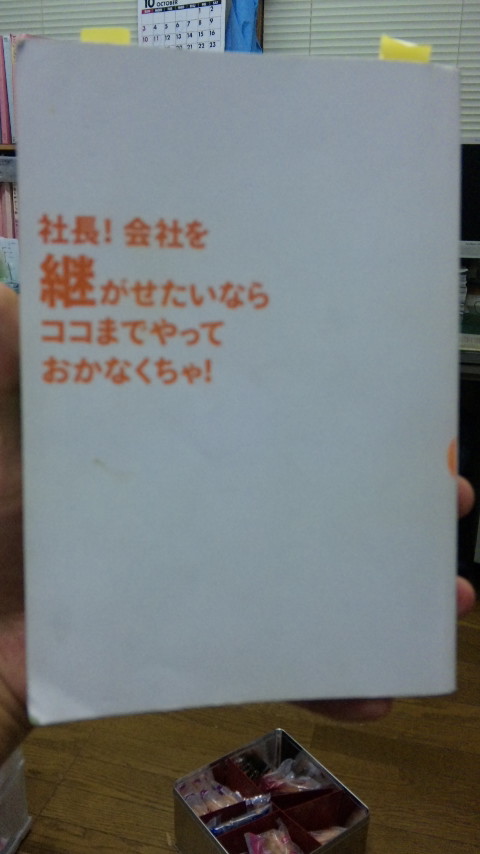 10 OCTOBER
1 2
3 4 5 6 7 8 9
10 11 12 13 14 15 16
社長！会社を
継がせたいなら
ココまでやって
おかなくちゃ！